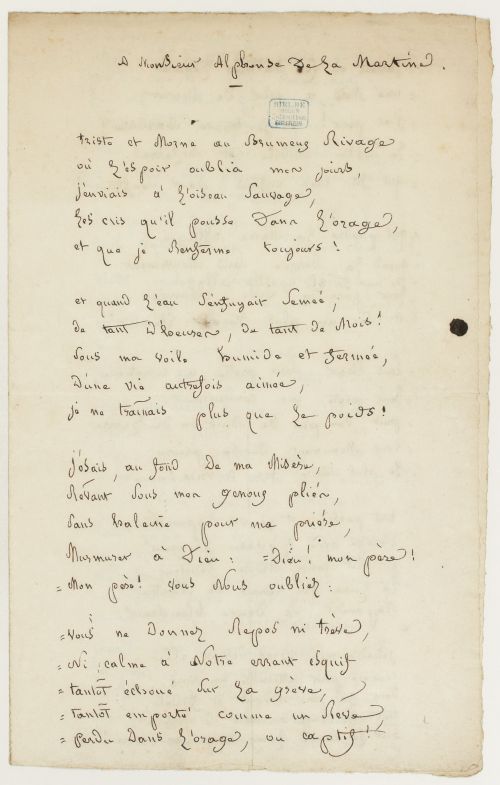 A Monsieur Alphonse De La Martine.
triste et Morne au Brumeux Rivage
où l'espoir oublia mes jours,
j'enviais à l'oiseau Sauvage,
les cris qu'il pousse Dans l'orage,
et que je Renferme toujours !
et quand l'eau s'enfuyait semée,
de tant D'heures, de tant de Mois !
Sous ma voile humide et fermée,
D'une vie autrefois aimée,
je ne traînais plus que le poids !
j'osais, au fond De ma Misère,
Rêvant Sous mes genoux pliés,
Sans haleine pour ma prière,
Murmurer à Dieu : =Dieu ! mon père !
= Mon père ! vous Nous oubliez :
=vous ne Donnez Repos ni trève,
= Ni calme à Notre errant esquif
= tantôt échoué Sur la grève,
= tantôt emporté comme un Rêve
= perdu Dans l'orage, ou captif !